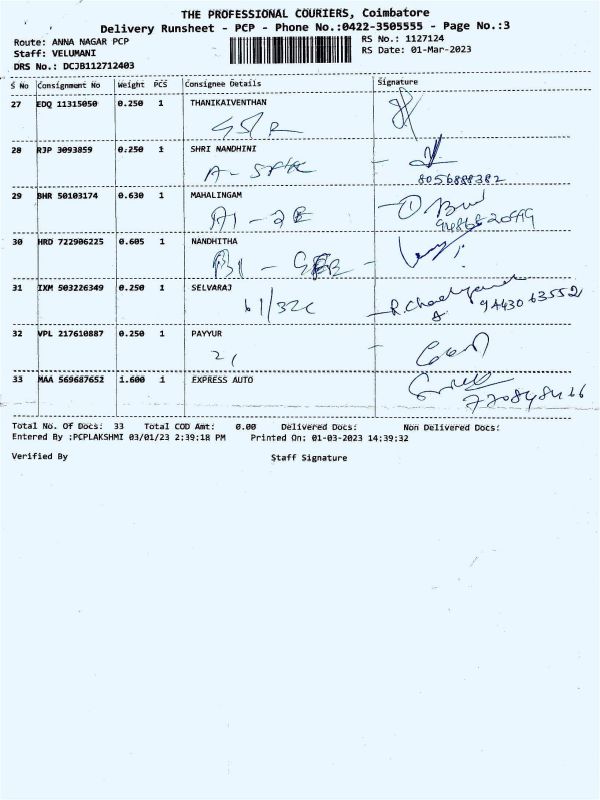 THE PROFESSIONAL COURIERS, Coimbatore
Delivery Runsheet - PCP - Phone No.:0422-3505555 - Page No.:3
Route: ANNA NAGAR PCP
RS No.: 1127124
Staff: VELUMANI
RS Date: 01-Mar-2023
DRS No.: DCJB112712403
S No Consignment No Weight PCS Consignee Details Signature
27 EDQ 11315050 0.250 1 THANIKAIVENTHAN
28 RJP 3093859 0.250 1 SHRI NANDHINI
8056888382
29 BHR 50103174 0.630 1 MAHALINGAM
A1 - 2E
30 HRD 722906225 0.605 1 NANDHITHA
B1
31 IXM 503226349 0.250 1 SELVARAJ
61/32C
94430 63552
32 VPL 217610887 0.250 1 PAYYUR
21
33 MAA 569687652 1.600 1 EXPRESS AUTO
Total No. Of Docs: 33 Total COD Amt: 0.00 Delivered Docs: Non Delivered Docs:
Entered By :PCPLAKSHMI 03/01/23 2:39:18 PM Printed On: 01-03-2023 14:39:32
Verified By Staff Signature